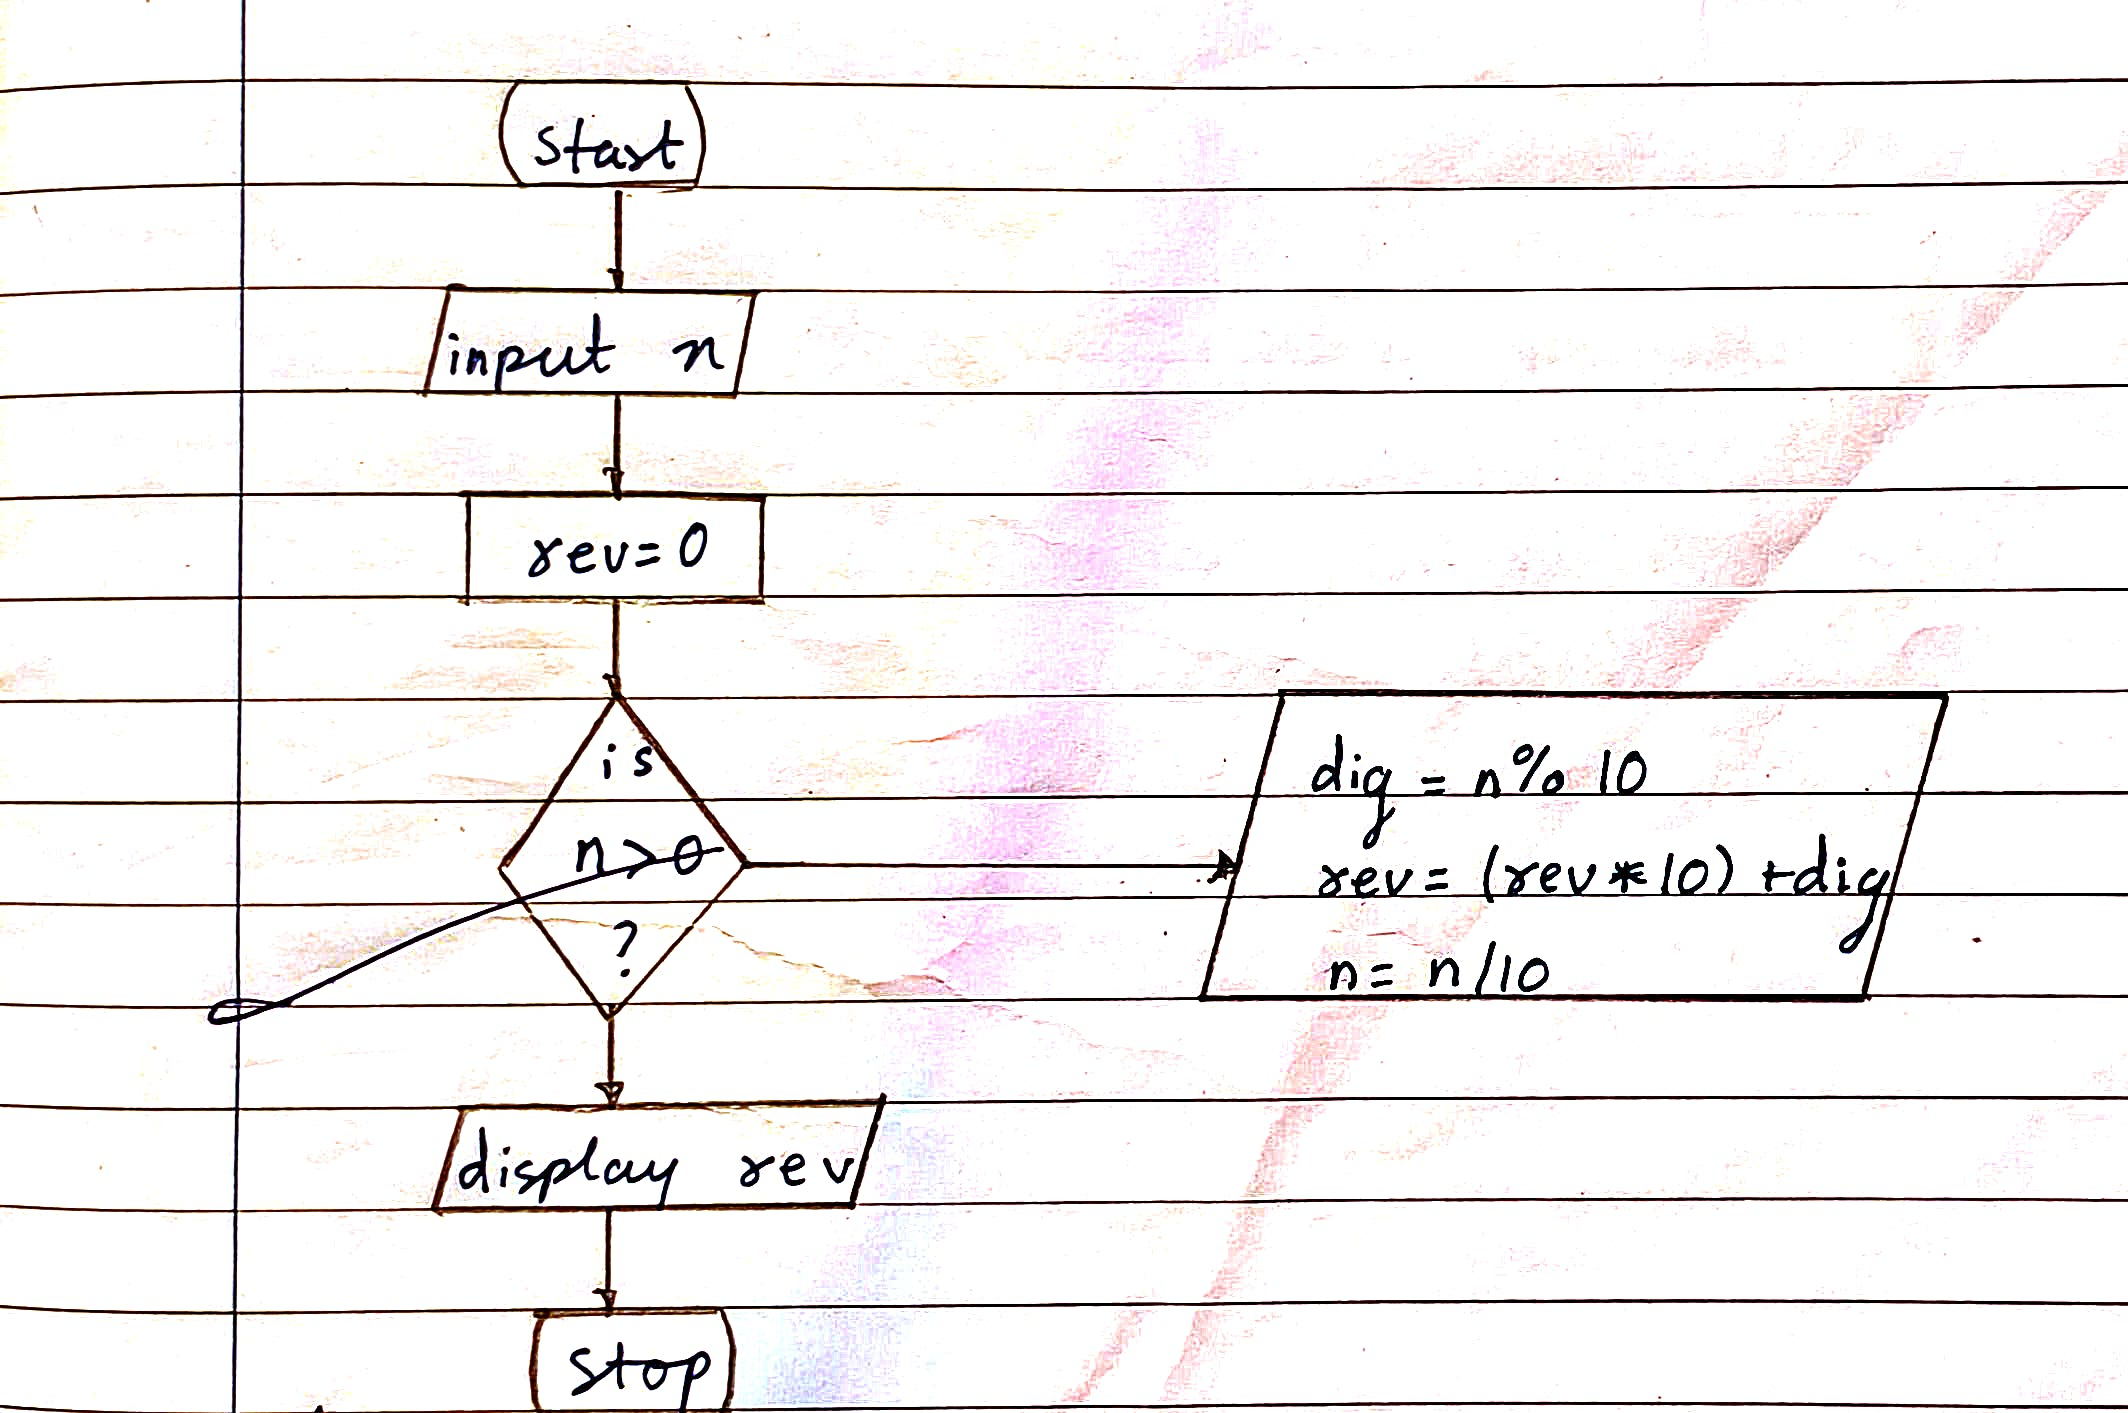 start
input n
rev=0
is
n>0
?
dig = n%10
rev= (rev*10) +dig
n= n/10
display rev
stop